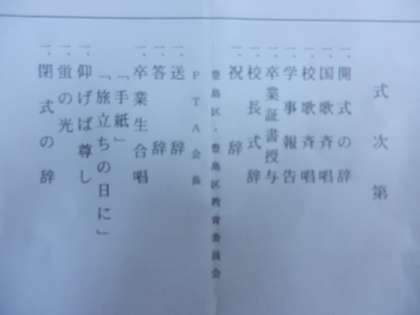 式次第
一、開式の辞
一、国歌斉唱
一、校歌斉唱
一、学事報告
一、卒業証書授与
一、校長式辞
一、祝辞
豊島区・豊島区教育委員会
PTA会長
一、送辞
一、答辞
一、卒業生合唱
「手紙」
「旅立ちの日に」
一、仰げば尊し
一、蛍の光
一、閉式の辞